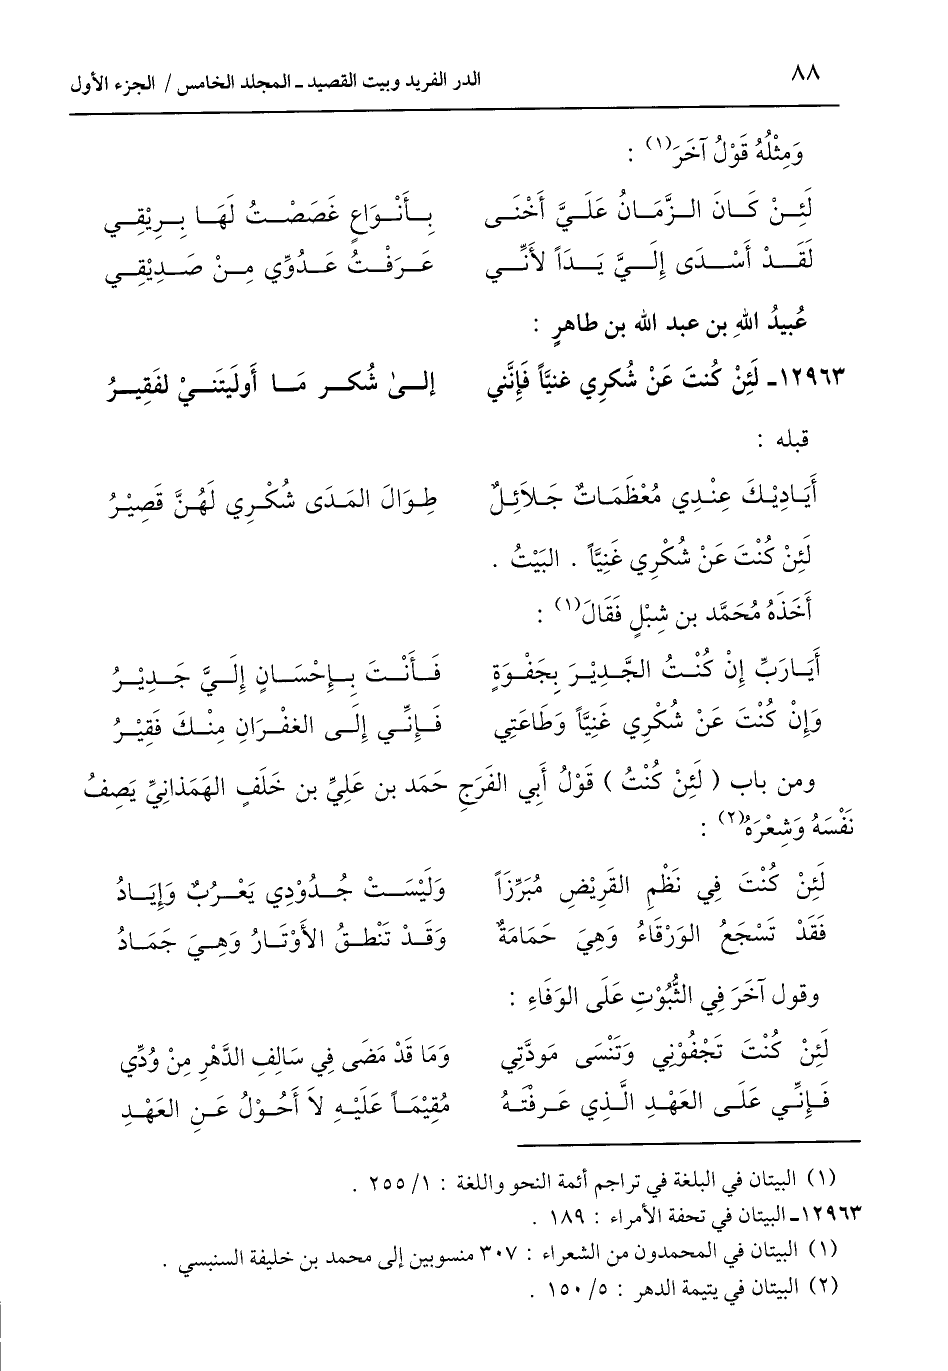 ٨٨ الدر الفريد وبيت القصيد ـ المجلد الخامس / الجزء الأول
وَمِثْلُهُ قَوْلُ آخَرَ(١) :
لَئِنْ كَانَ الزَّمَانُ عَلَيَّ أَخْنَى بِأَنْوَاعٍ غَصَصْتُ لَهَا بِرِيْقِي
لَقَدْ أَسْدَى إِلَيَّ يَدَاً لأَنِّي عَرَفْتُ عَدُوِّي مِنْ صَدِيْقِي
عُبيدُ اللهِ بن عبد الله بن طاهرٍ :
١٢٩٦٣ـ لَئِنْ كُنتَ عَنْ شُكرِي غنيَّاً فَإِنَّني إلىٰ شُكرِ مَا أَولَيتَنيْ لفَقِيرُ
قبله :
أَيَادِيْكَ عِنْدِي مُعْظَمَاتٌ جَلاَئِلٌ طِوَالَ المَدَى شُكْرِي لَهُنَّ قَصِيْرُ
لَئِنْ كُنْتَ عَنْ شُكْرِي غَنِيَّاً . البَيْتُ .
أَخَذَهُ مُحَمَّد بن شِبْلٍ فَقَالَ(١) :
أَيَارَبِّ إِنْ كُنْتُ الجَّدِيْرَ بِجَفْوَةٍ فَأَنْتَ بِإِحْسَانٍ إِلَيَّ جَدِيْرُ
وَإِنْ كُنْتَ عَنْ شُكْرِي غَنِيَّاً وَطَاعَتِي فَإِنِّي إِلَى الغفْرَانِ مِنْكَ فَقِيْرُ
ومن باب ( لَئِنْ كُنْتُ ) قَوْلُ أَبِي الفَرَجِ حَمَد بن عَلِيِّ بن خَلَفٍ الهَمَذانِيِّ يَصِفُ
نَفْسَهُ وَشِعْرَهُ(٢) :
لَئِنْ كُنْتَ فِي نَظْمِ القَرِيْضِ مُبَرِّزَاً وَلَيسَتْ جُدُوْدِي يَعْرُبٌ وَإِيَادُ
فَقَدْ تَسْجَعُ الوَرْقَاءُ وَهِيَ حَمَامَةٌ وَقَدْ تَنْطقُ الأَوْتَارُ وَهِيَ جَمَادُ
وقول آخَرَ فِي الثُّبُوْتِ عَلَى الوَفَاءِ :
لَئِنْ كُنْتَ تَجْفُوْنِي وَتَنْسَى مَودَّتِي وَمَا قَدْ مَضَى فِي سَالِفِ الدَّهْرِ مِنْ وُدِّي
فَإِنِّي عَلَى العَهْدِ الَّذِي عَرفْتَهُ مُقِيْمَاً عَلَيْهِ لاَ أَحُوْلُ عَنِ العَهْدِ
(١) البيتان في البلغة في تراجم أئمة النحو واللغة : ١/ ٢٥٥ .
١٢٩٦٣ـ البيتان في تحفة الأمراء : ١٨٩ .
(١) البيتان في المحمدون من الشعراء : ٣٠٧ منسوبين إلى محمد بن خليفة السنبسي .
(٢) البيتان في يتيمة الدهر : ٥/ ١٥٠ .